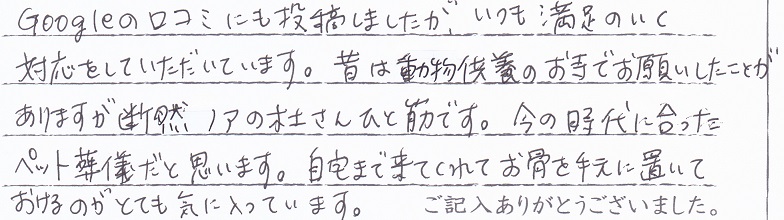 Googleの口コミにも投稿しましたが、いつも満足のいく
対応をしていただいています。昔は動物供養のお寺でお願いしたことが
ありますが断然ノアの杜さんひと筋です。今の時代に合った
ペット葬儀だと思います。自宅まで来てくれてお骨を手元に置いて
おけるのがとても気に入っています。 ご記入ありがとうございました。